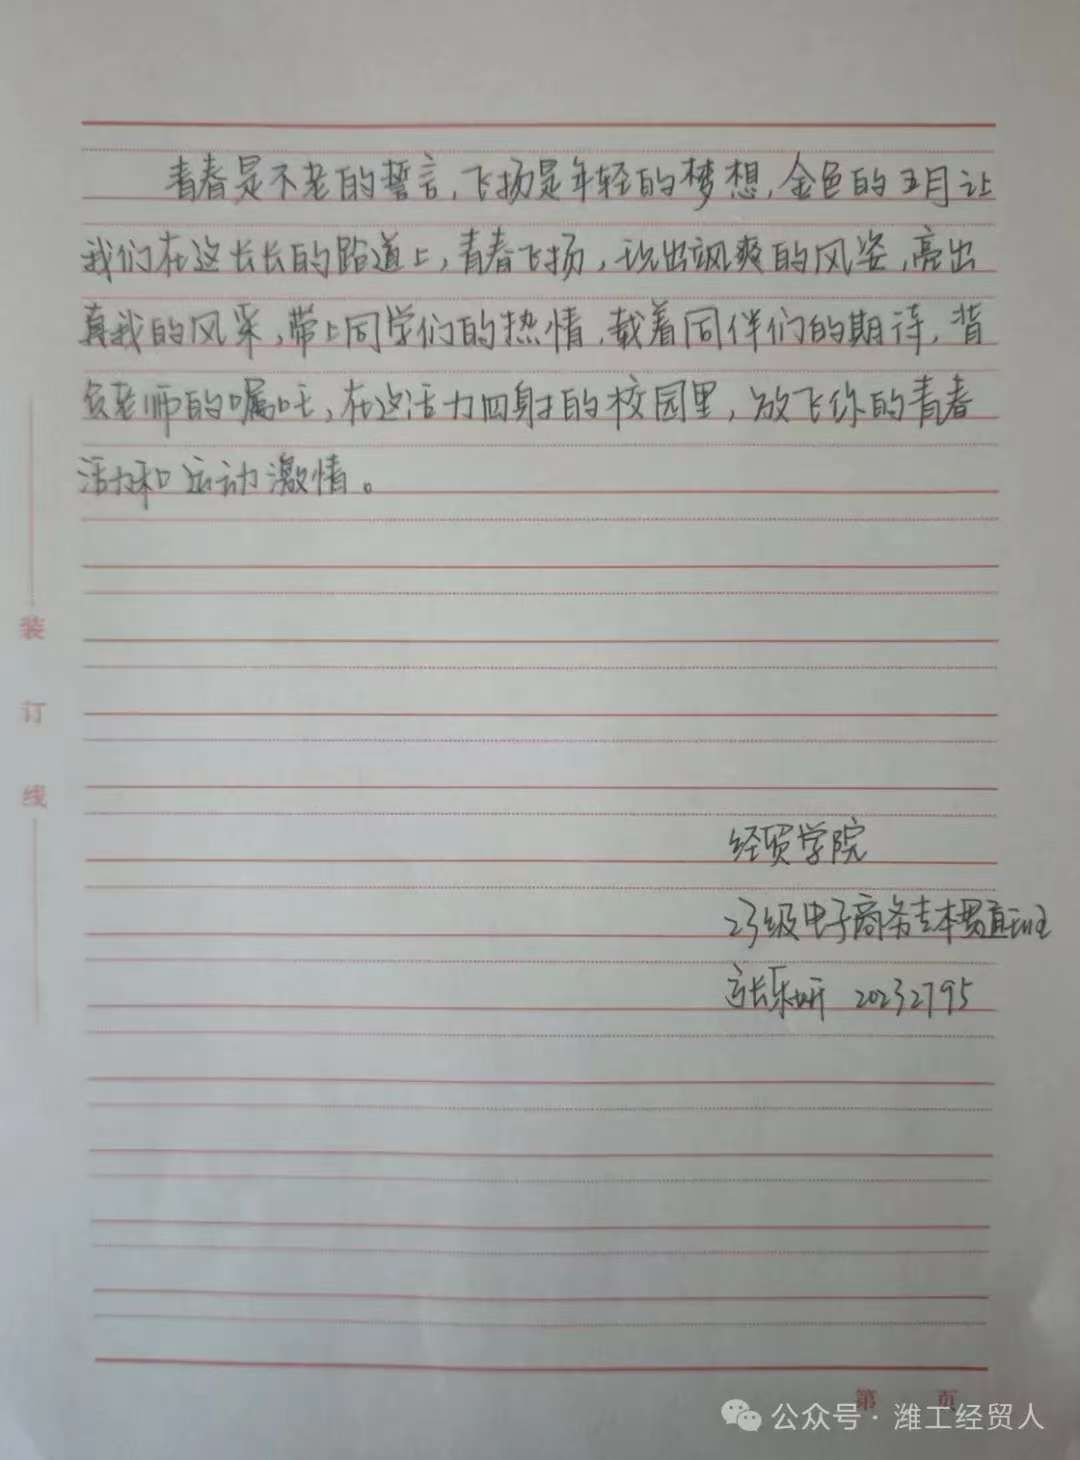 青春是不老的誓言,飞扬是年轻的梦想,金色的五月让
我们在这长长的路道上,青春飞扬,玩出飒爽的风姿,亮出
真我的风采,带上同学们的热情,载着同伴们的期待,背
负老师的嘱咐,在这活力四射的校园里,放飞你的青春
活力和运动激情。
装
订
线
经贸学院
23级电子商务专本贯通班
张乐妍 20232795
第 页
公众号·潍工经贸人